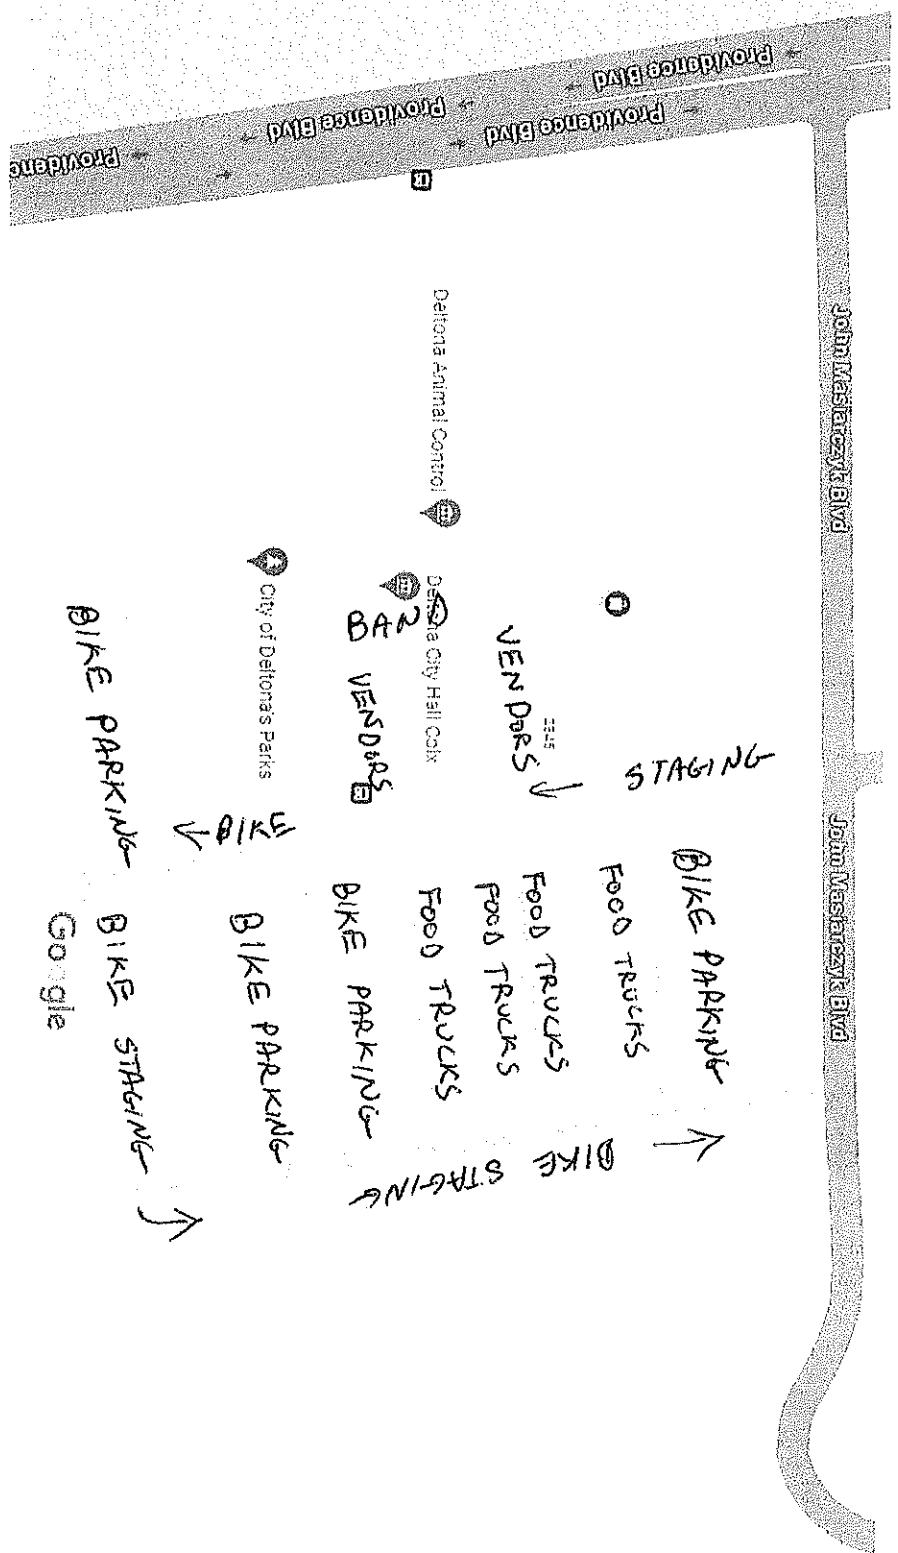 Providence Blvd
Providence Blvd
Providence Blvd
Providence Blvd
Providenc
John Masiarczyk Blvd
John Masiarczyk Blvd
Deltona Animal Control
City Hall
City of Deltona's Parks
2345
BAND
VENDORS
VENDORS
STAGING
BIKE PARKING
FOOD TRUCKS
FOOD TRUCKS
FOOD TRUCKS
FOOD TRUCKS
BIKE PARKING
BIKE PARKING
BIKE
BIKE PARKING
BIKE STAGING
BIKE STAGING
Google